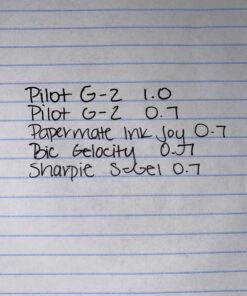 Pilot G-2 1.0
Pilot G-2 0.7
Papermate Ink Joy 0.7
Bic Gelocity 0.7
Sharpie S-Gel 0.7